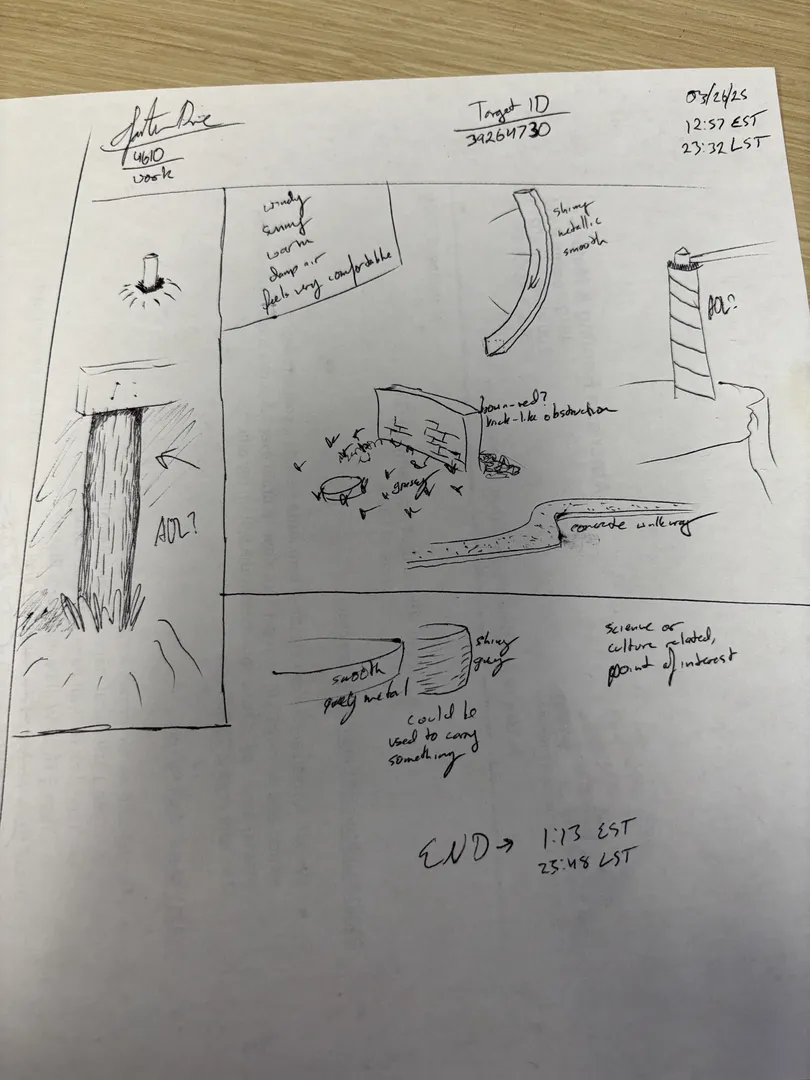 4610
work
Target ID
39264730
03/26/25
12:57 EST
23:32 LST
windy
sunny
warm
damp air
feels very comfortable
shiny
metallic
smooth
AOL?
brown-red?
brick-like obstruction
grassy
concrete walkway
AOL?
smooth
grey metal
shiny
grey
could be
used to carry
something
science or
culture related,
point of interest
END → 1:13 EST
23:48 LST